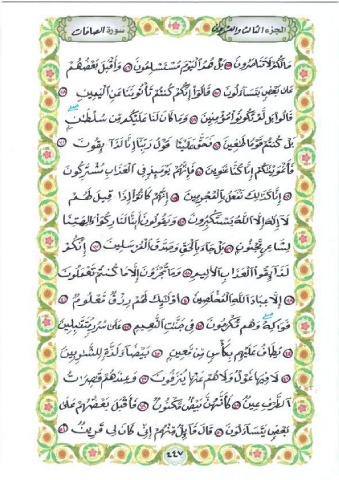 الجزء الثالث والعشرون
سورة الصافات
مَا لَكُمْ لَا تَنَاصَرُونَ ٢٥ بَلْ هُمُ الْيَوْمَ مُسْتَسْلِمُونَ ٢٦ وَأَقْبَلَ بَعْضُهُمْ
عَلَىٰ بَعْضٍ يَتَسَاءَلُونَ ٢٧ قَالُوا إِنَّكُمْ كُنْتُمْ تَأْتُونَنَا عَنِ الْيَمِينِ ٢٨
قَالُوا بَلْ لَمْ تَكُونُوا مُؤْمِنِينَ ٢٩ وَمَا كَانَ لَنَا عَلَيْكُمْ مِنْ سُلْطَانٍ
بَلْ كُنْتُمْ قَوْمًا طَاغِينَ ٣٠ فَحَقَّ عَلَيْنَا قَوْلُ رَبِّنَا إِنَّا لَذَائِقُونَ ٣١
فَأَغْوَيْنَاكُمْ إِنَّا كُنَّا غَاوِينَ ٣٢ فَإِنَّهُمْ يَوْمَئِذٍ فِي الْعَذَابِ مُشْتَرِكُونَ ٣٣
إِنَّا كَذَٰلِكَ نَفْعَلُ بِالْمُجْرِمِينَ ٣٤ إِنَّهُمْ كَانُوا إِذَا قِيلَ لَهُمْ
لَا إِلَٰهَ إِلَّا اللَّهُ يَسْتَكْبِرُونَ ٣٥ وَيَقُولُونَ أَئِنَّا لَتَارِكُو آلِهَتِنَا
لِشَاعِرٍ مَجْنُونٍ ٣٦ بَلْ جَاءَ بِالْحَقِّ وَصَدَّقَ الْمُرْسَلِينَ ٣٧ إِنَّكُمْ
لَذَائِقُو الْعَذَابِ الْأَلِيمِ ٣٨ وَمَا تُجْزَوْنَ إِلَّا مَا كُنْتُمْ تَعْمَلُونَ ٣٩
إِلَّا عِبَادَ اللَّهِ الْمُخْلَصِينَ ٤٠ أُولَٰئِكَ لَهُمْ رِزْقٌ مَعْلُومٌ ٤١
فَوَاكِهُ وَهُمْ مُكْرَمُونَ ٤٢ فِي جَنَّاتِ النَّعِيمِ ٤٣ عَلَىٰ سُرُرٍ مُتَقَابِلِينَ ٤٤
يُطَافُ عَلَيْهِمْ بِكَأْسٍ مِنْ مَعِينٍ ٤٥ بَيْضَاءَ لَذَّةٍ لِلشَّارِبِينَ ٤٦
لَا فِيهَا غَوْلٌ وَلَا هُمْ عَنْهَا يُنْزَفُونَ ٤٧ وَعِنْدَهُمْ قَاصِرَاتُ
الطَّرْفِ عِينٌ ٤٨ كَأَنَّهُنَّ بَيْضٌ مَكْنُونٌ ٤٩ فَأَقْبَلَ بَعْضُهُمْ عَلَىٰ
بَعْضٍ يَتَسَاءَلُونَ ٥٠ قَالَ قَائِلٌ مِنْهُمْ إِنِّي كَانَ لِي قَرِينٌ ٥١
٤٤٧